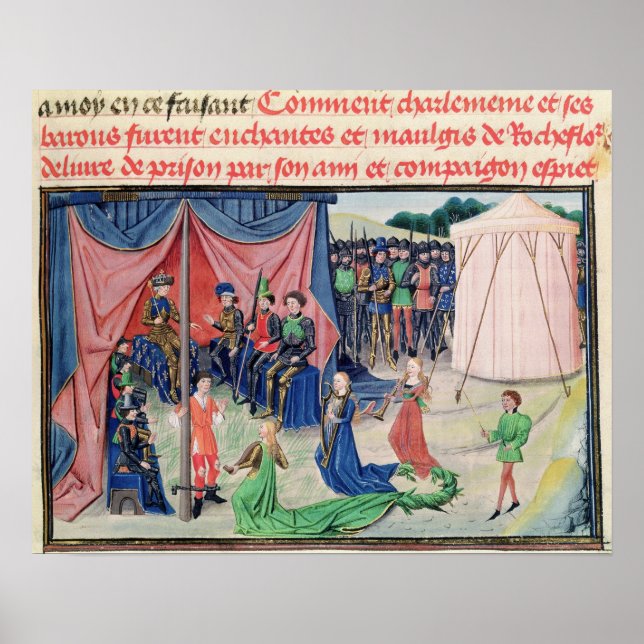 amoy en ce faisant Comment charlemeine et ses
barons furent enchantes et maulgis de Rocheflor
deliure de prison par son ann et compaignon espiet